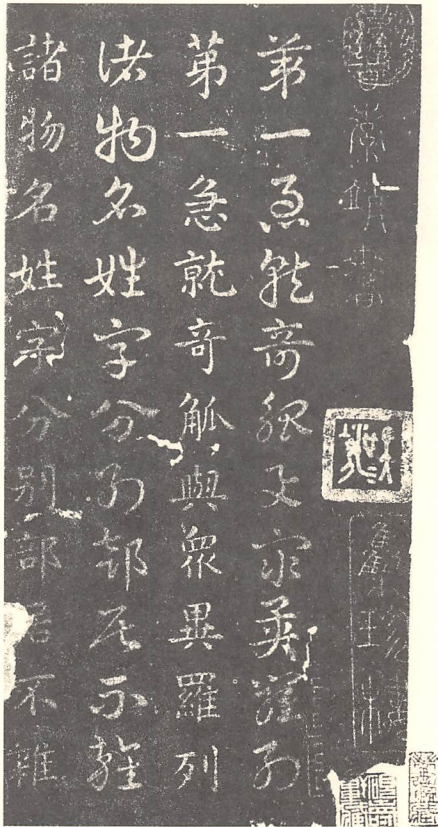 第一急就奇觚與眾異羅列
第一急就奇觚與眾異羅列
諸物名姓字分別部居不雜
諸物名姓字分別部居不雜